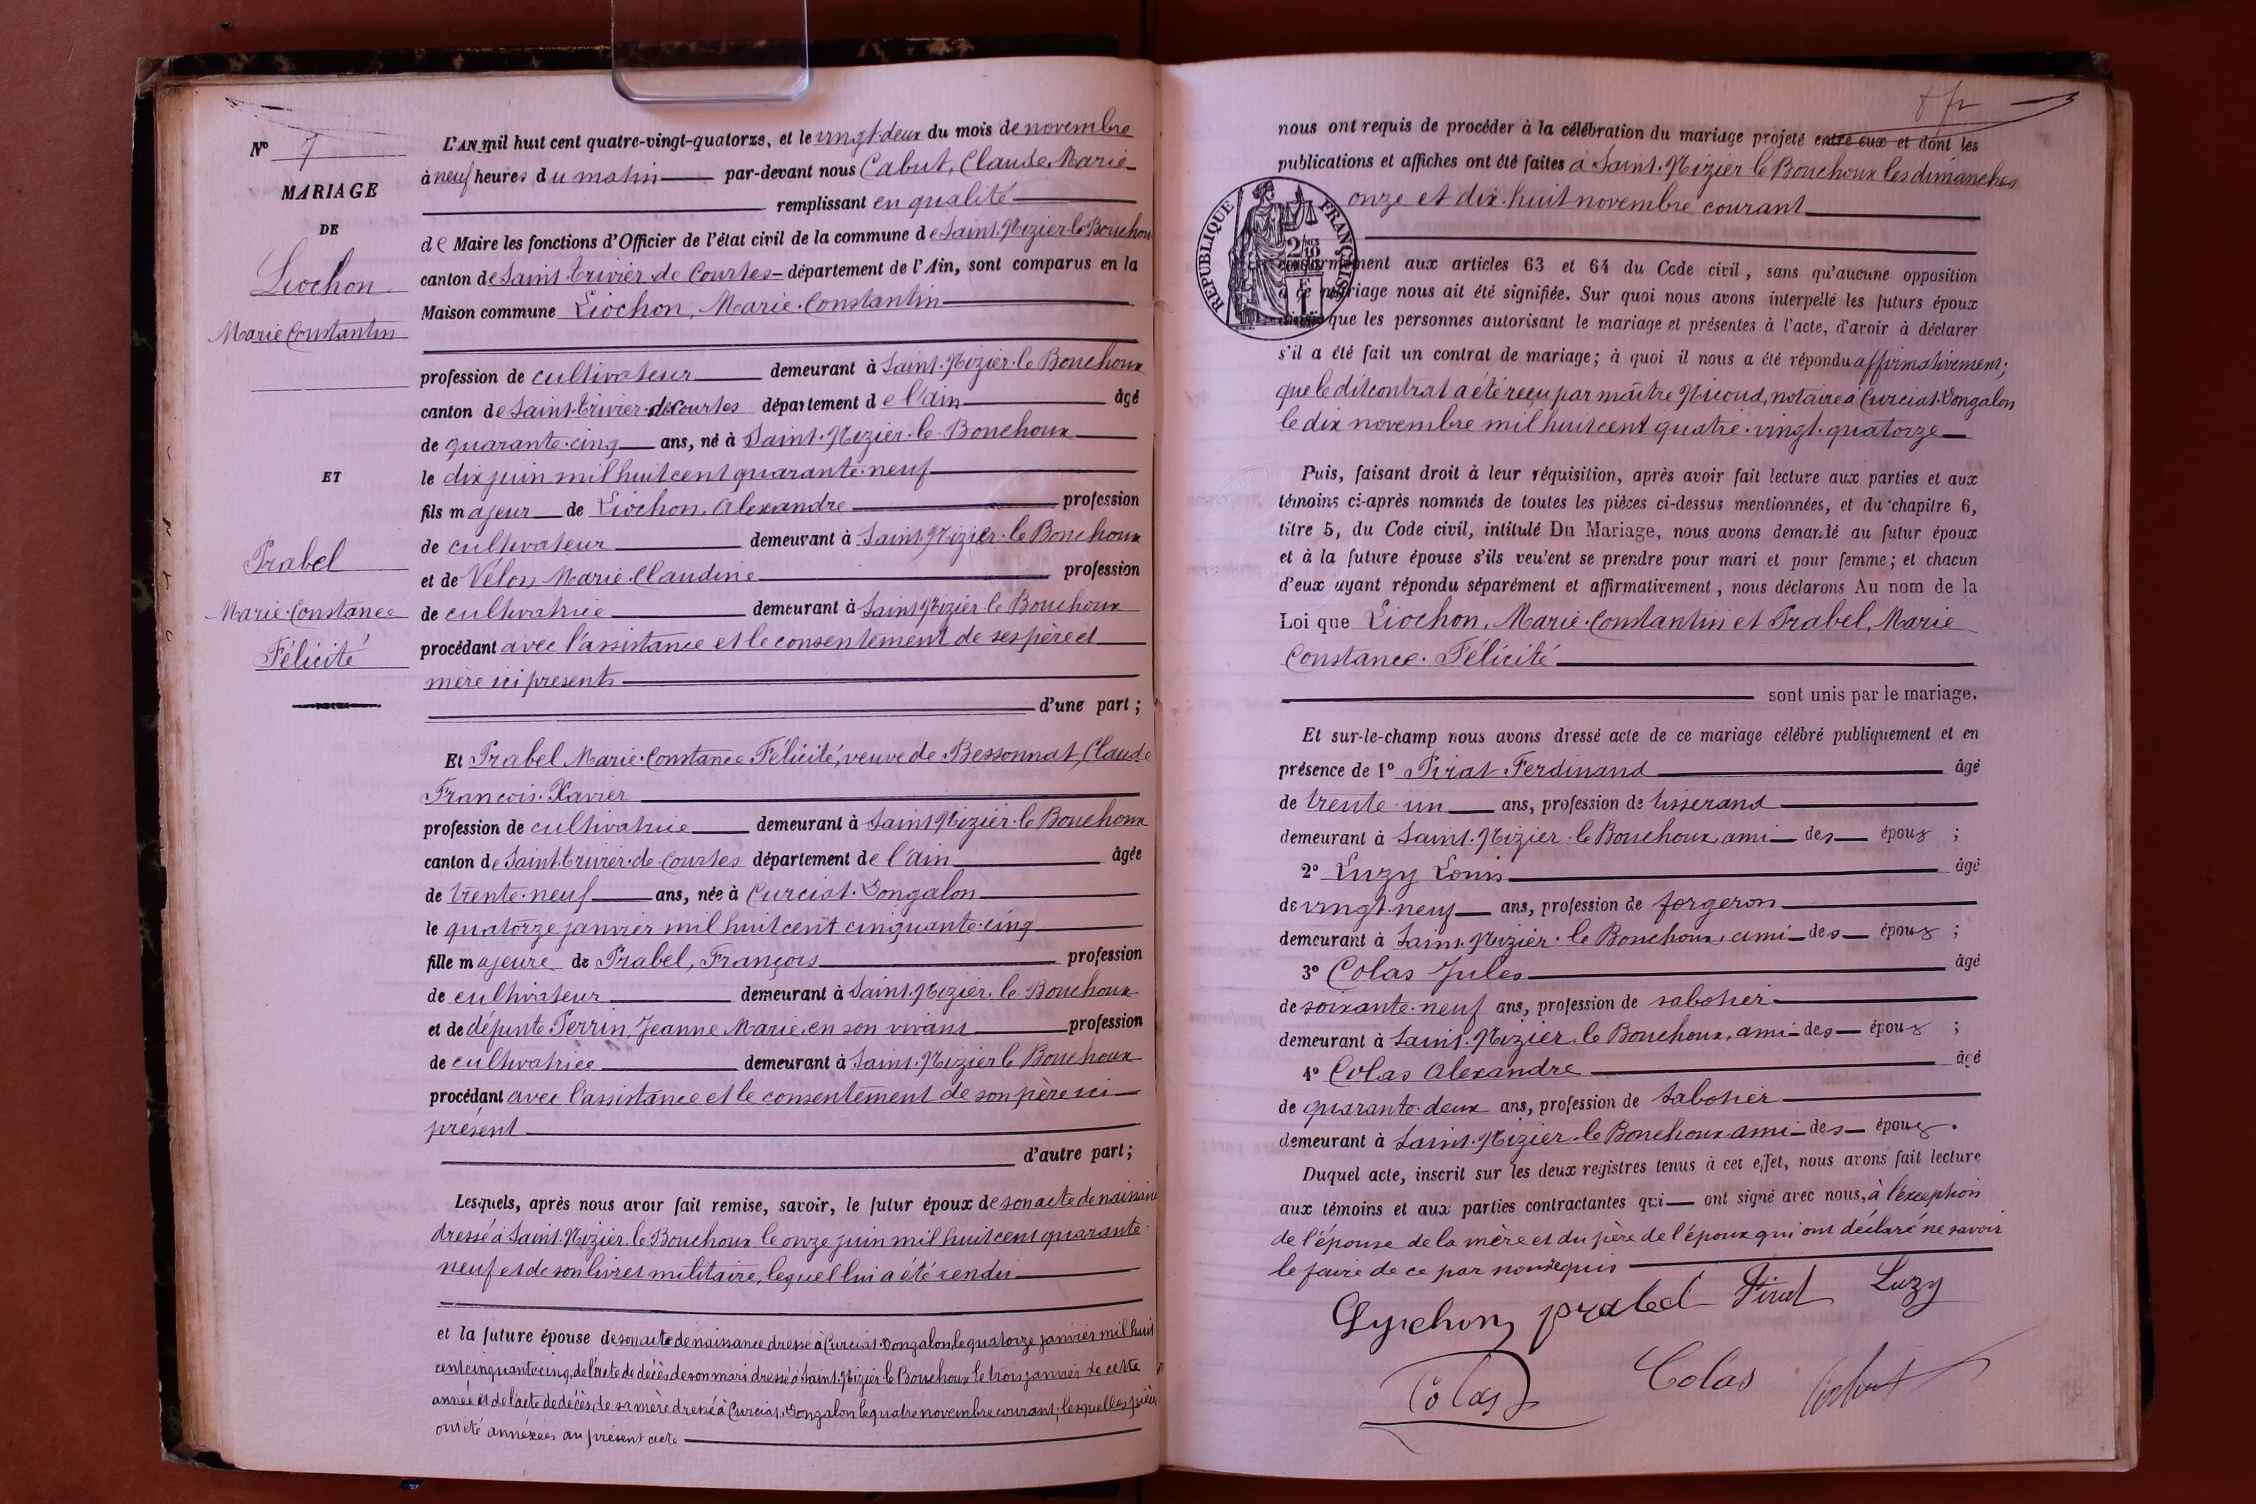 N° 7
MARIAGE
DE
Liochon
Marie Constantin
ET
Prabel
Marie-Constance
Félicité
L'AN mil huit cent quatre-vingt-quatorze, et le vingt-deux du mois de novembre
à neuf heures du matin par-devant nous Cabut, Claude Marie
remplissant en qualité
de Maire les fonctions d'Officier de l'état civil de la commune de Saint-Nizier-le-Bouchoux
canton de Saint-Trivier-de-Courtes département de l'Ain, sont comparus en la
Maison commune Liochon, Marie-Constantin
profession de cultivateur demeurant à Saint-Nizier-le-Bouchoux
canton de Saint-Trivier-de-Courtes département de l'ain âgé
de quarante-cinq ans, né à Saint-Nizier-le-Bouchoux
le dix juin mil huit cent quarante-neuf
fils majeur de Liochon, Alexandre profession
de cultivateur demeurant à Saint-Nizier-le-Bouchoux
et de Velon Marie-Claudine profession
de cultivatrice demeurant à Saint-Nizier-le-Bouchoux
procédant avec l'assistance et le consentement de ses père et
mère ici présents
d'une part ;
Et Prabel Marie-Constance Félicité, veuve de Bessonnat, Claude
François-Xavier
profession de cultivatrice demeurant à Saint-Nizier-le-Bouchoux
canton de Saint-Trivier-de-Courtes département de l'ain âgée
de trente-neuf ans, née à Curciat-Dongalon
le quatorze janvier mil huit cent cinquante-cinq
fille majeure de Prabel, François profession
de cultivateur demeurant à Saint-Nizier-le-Bouchoux
et de défunte Perrin Jeanne Marie en son vivant profession
de cultivatrice demeurant à Saint-Nizier-le-Bouchoux
procédant avec l'assistance et le consentement de son père ici
présent
d'autre part ;
Lesquels, après nous avoir fait remise, savoir, le futur époux de son acte de naissance
dressé à Saint-Nizier-le-Bouchoux le onze juin mil huit cent quarante-
neuf et de son livret militaire, lequel lui a été rendu
et la future épouse de son acte de naissance dressé à Curciat-Dongalon le quatorze janvier mil huit
cent cinquante cinq, de l'acte de décès de son mari dressé à Saint-Nizier-le-Bouchoux le trois janvier de cette
année et de l'acte de décès de sa mère dressé à Curciat-Dongalon le quatre novembre courant ; lesquelles pièces
ont été annexées au présent acte
nous ont requis de procéder à la célébration du mariage projeté entre eux et dont les
publications et affiches ont été faites à Saint-Nizier le Bouchoux les dimanches
onze et dix-huit novembre courant
RÉPUBLIQUE FRANÇAISE
conformément aux articles 63 et 64 du Code civil, sans qu'aucune opposition
à ce mariage nous ait été signifiée. Sur quoi nous avons interpellé les futurs époux
ainsi que les personnes autorisant le mariage et présentes à l'acte, d'avoir à déclarer
s'il a été fait un contrat de mariage ; à quoi il nous a été répondu affirmativement ;
que le dit contrat a été reçu par maître Nicoud, notaire à Curciat-Dongalon
le dix novembre mil huit cent quatre-vingt-quatorze
Puis, faisant droit à leur réquisition, après avoir fait lecture aux parties et aux
témoins ci-après nommés de toutes les pièces ci-dessus mentionnées, et du chapitre 6,
titre 5, du Code civil, intitulé Du Mariage, nous avons demandé au futur époux
et à la future épouse s'ils veulent se prendre pour mari et pour femme ; et chacun
d'eux ayant répondu séparément et affirmativement, nous déclarons Au nom de la
Loi que Liochon, Marie-Constantin et Prabel, Marie
Constance-Félicité
sont unis par le mariage.
Et sur-le-champ nous avons dressé acte de ce mariage célébré publiquement et en
présence de 1° Pirat Ferdinand âgé
de trente-un ans, profession de tisserand
demeurant à Saint-Nizier-le-Bouchoux, ami des époux ;
2° Luzy Louis âgé
de vingt-neuf ans, profession de forgeron
demeurant à Saint-Nizier-le-Bouchoux, ami des époux ;
3° Colas Jules âgé
de soixante-neuf ans, profession de sabotier
demeurant à Saint-Nizier-le-Bouchoux, ami des époux ;
4° Colas Alexandre âgé
de quarante-deux ans, profession de sabotier
demeurant à Saint-Nizier-le-Bouchoux ami des époux.
Duquel acte, inscrit sur les deux registres tenus à cet effet, nous avons fait lecture
aux témoins et aux parties contractantes qui ont signé avec nous, à l'exception
de l'épouse de la mère et du père de l'époux qui ont déclaré ne savoir
le faire de ce par nous requis
Lyochon prabel Pirat Luzy
Colas Colas Cabut